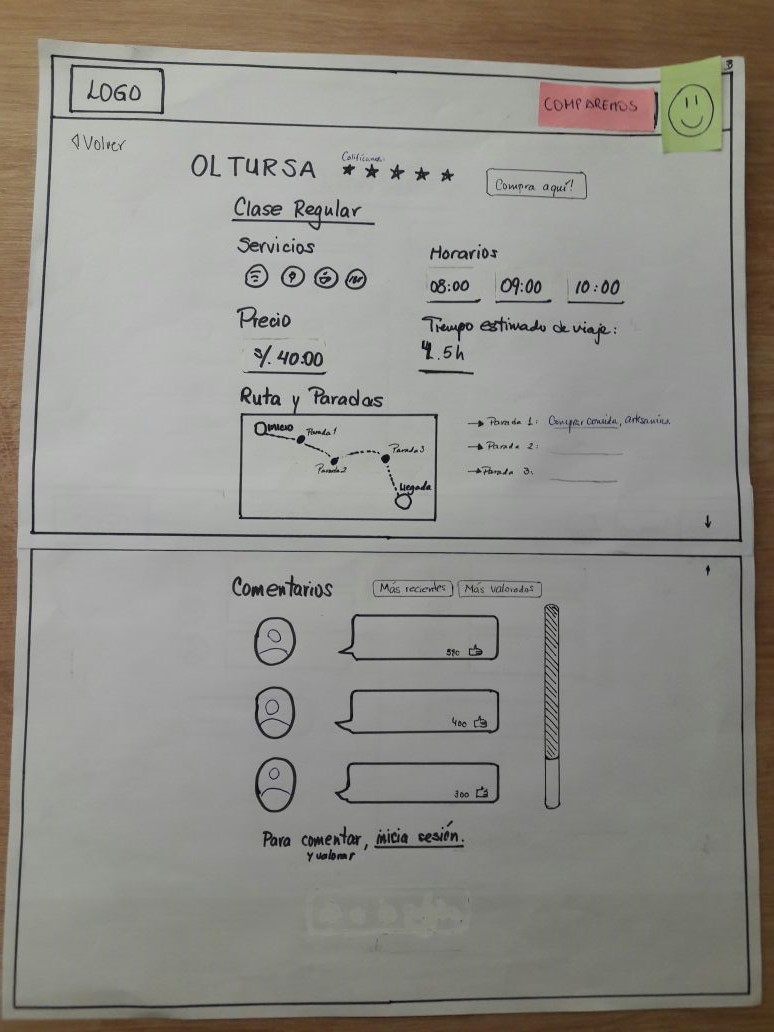 3
LOGO
COMPAREMOS
Volver
OLTURSA
Calificanos:
Compra aquí!
Clase Regular
Servicios
Horarios
08:00 09:00 10:00
Precio
Tiempo estimado de viaje:
S/. 40.00
4.5h
Ruta y Paradas
Inicio
Parada 1
Parada 2
Parada 3
Llegada
Parada 1: Comprar comida, artesanías.
Parada 2:
Parada 3:
Comentarios
Más recientes
Más valorados
400
300
Para comentar, inicia sesión.
y valorar